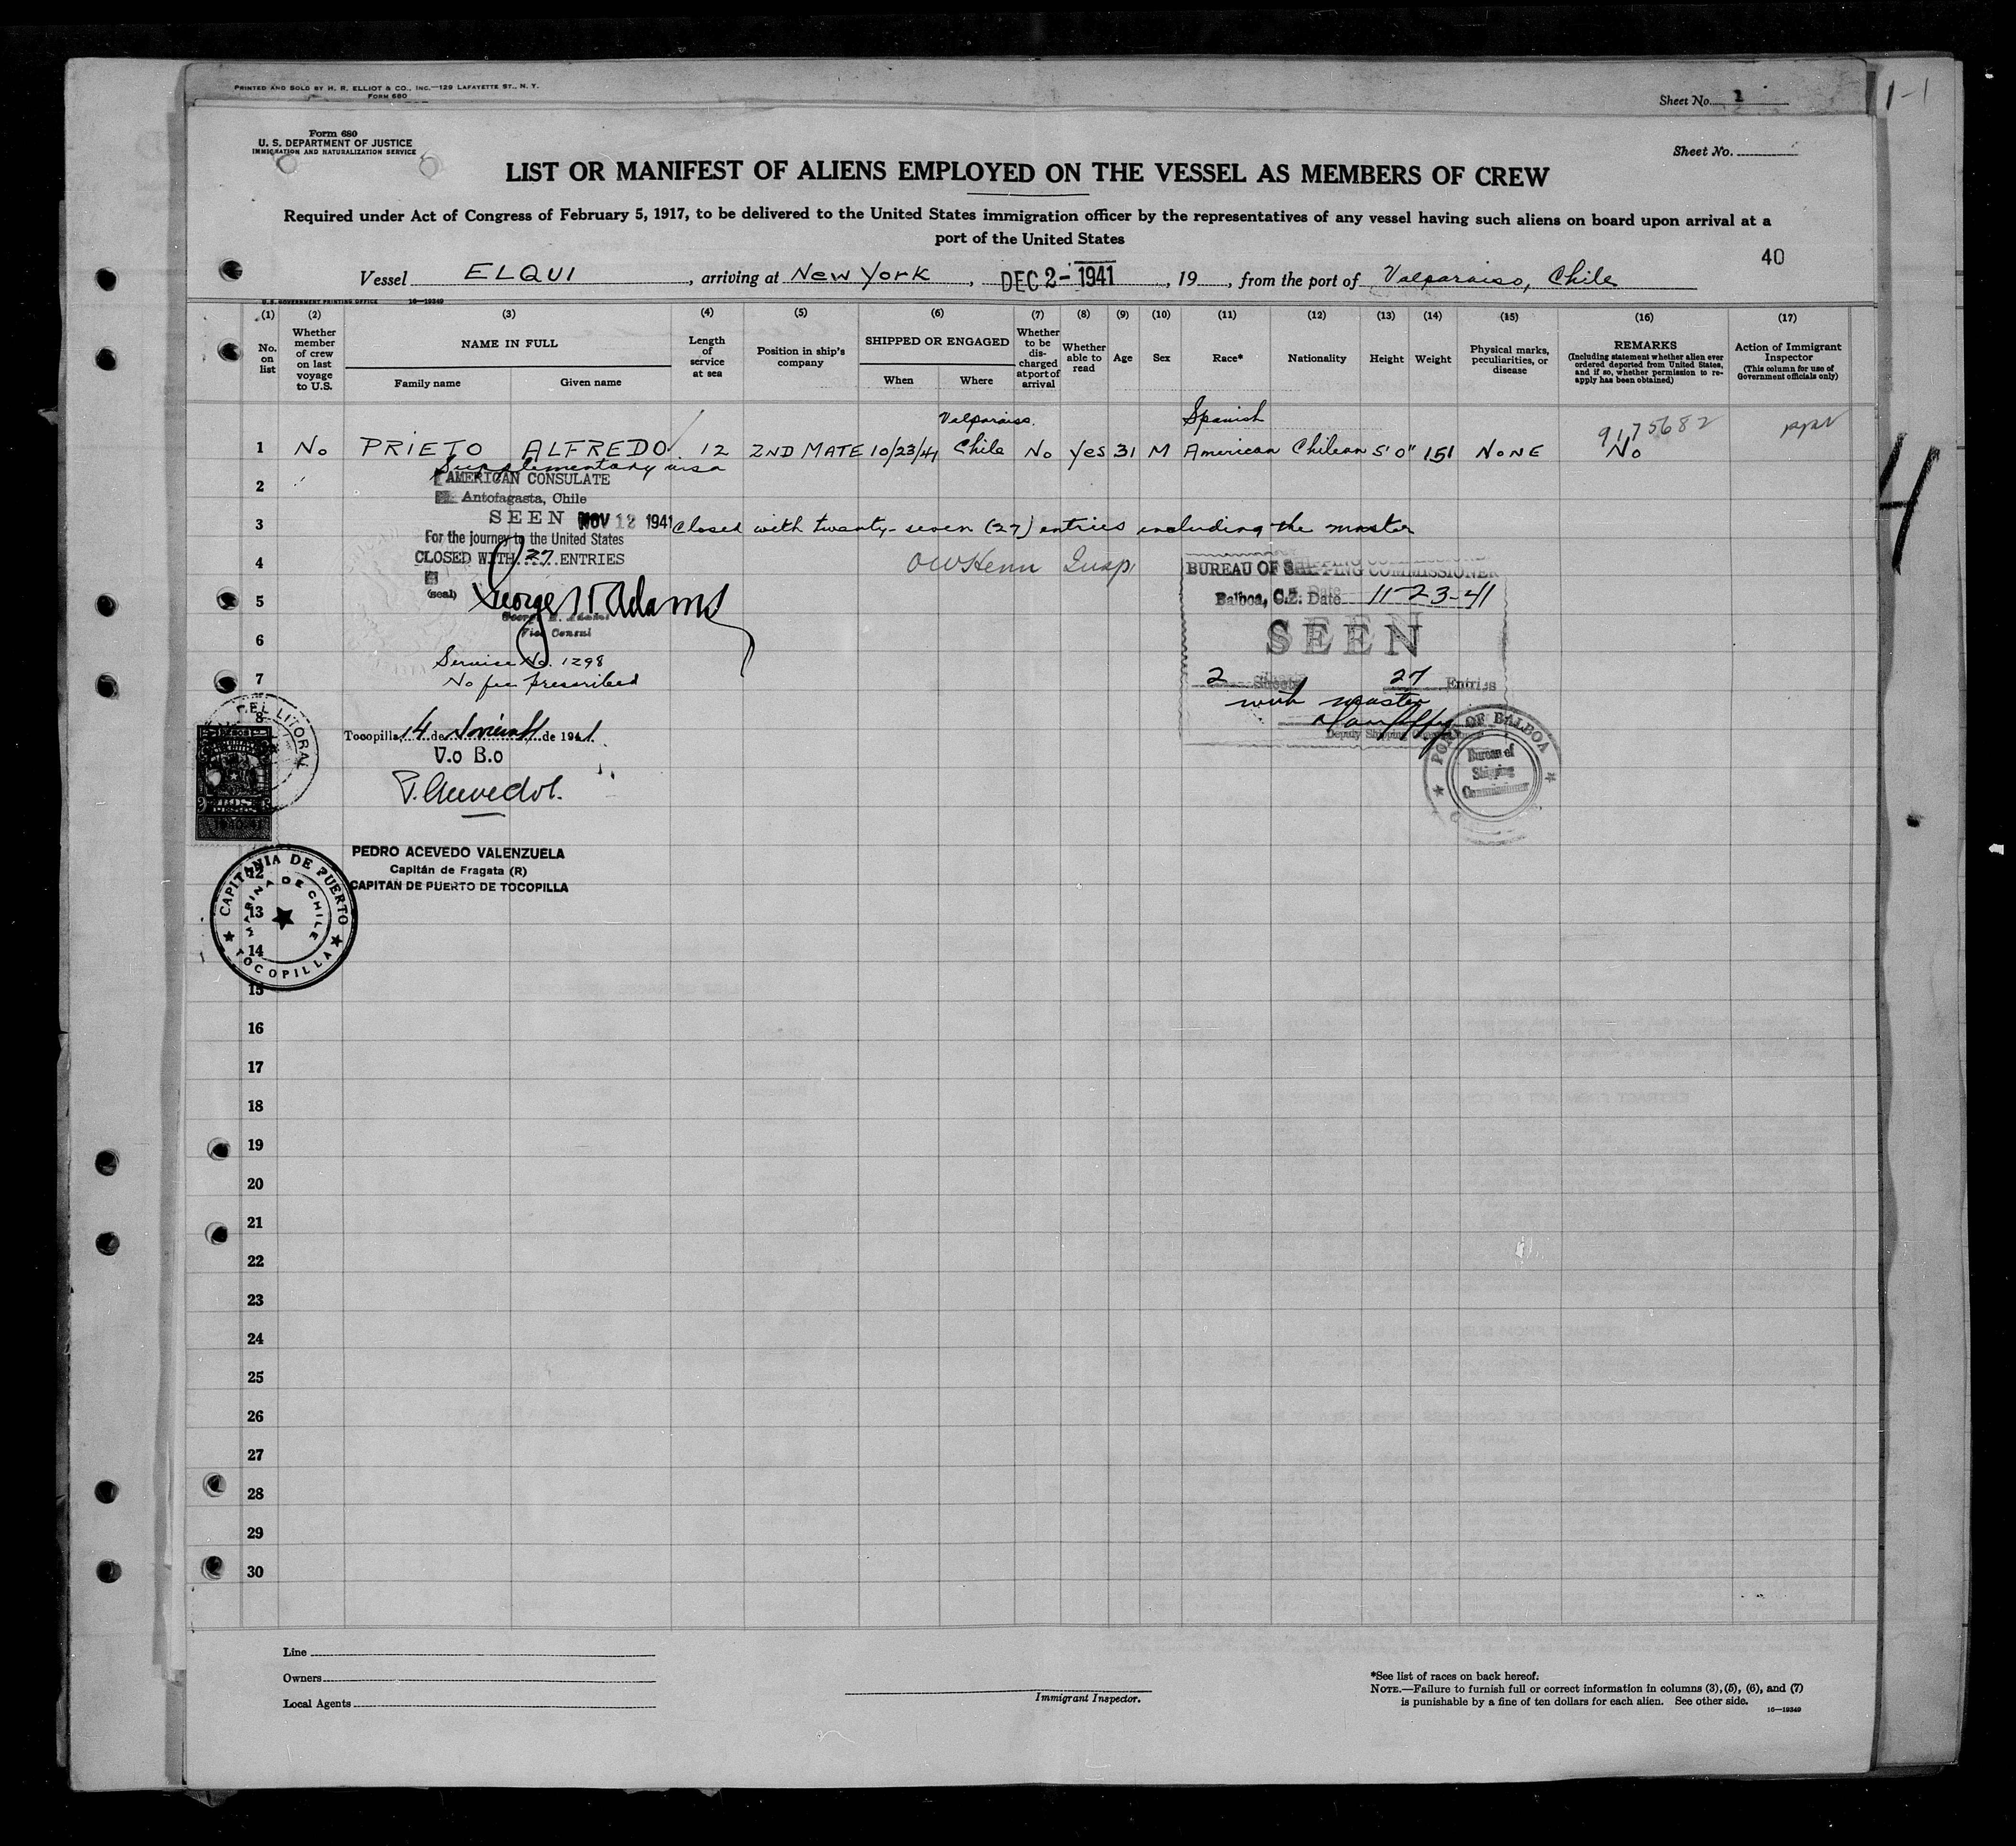 PRINTED AND SOLD BY H. R. ELLIOT & CO., INC.—129 LAFAYETTE ST., N. Y.
FORM 680
Sheet No. 1
1-1
Form 680
U. S. DEPARTMENT OF JUSTICE
IMMIGRATION AND NATURALIZATION SERVICE
Sheet No.
LIST OR MANIFEST OF ALIENS EMPLOYED ON THE VESSEL AS MEMBERS OF CREW
Required under Act of Congress of February 5, 1917, to be delivered to the United States immigration officer by the representatives of any vessel having such aliens on board upon arrival at a
port of the United States
40
Vessel ELQUI, arriving at New York, DEC 2- 1941, 19, from the port of Valparaiso, Chile
U.S. GOVERNMENT PRINTING OFFICE 16—19349
(1) No. on list
(2) Whether member of crew on last voyage to U.S.
(3) NAME IN FULL Family name Given name
(4) Length of service at sea
(5) Position in ship's company
(6) SHIPPED OR ENGAGED When Where
(7) Whether to be discharged at port of arrival
(8) Whether able to read
(9) Age
(10) Sex
(11) Race*
(12) Nationality
(13) Height
(14) Weight
(15) Physical marks, peculiarities, or disease
(16) REMARKS (Including statement whether alien ever ordered deported from United States, and if so, whether permission to re-apply has been obtained)
(17) Action of Immigrant Inspector (This column for use of Government officials only)
Valparaiso. Spanish 9175682
1 No PRIETO ALFREDO 12 2ND MATE 10/23/41 Chile No Yes 31 M American Chilean 5'0" 151 NONE No
Supplementary visa
2 AMERICAN CONSULATE
Antofagasta, Chile
3 SEEN NOV 12 1941 Closed with twenty-seven (27) entries including the master
For the journey to the United States
4 CLOSED WITH 27 ENTRIES
Insp
BUREAU OF SHIPPING COMMISSIONER
(seal)
5 George W. Adams
Vice Consul
Balboa, C.Z. Date 11-23-41
6 SEEN
Service No. 1298
7 No fee prescribed
2 Sheets 27 Entries
with master
Deputy Shipping Commissioner
PORT OF BALBOA
Bureau of
Shipping
Commissioner
4
DEL LITORAL
8
DOS
Tocopilla, 14 de Noviemb de 1941
V.o B.o
P. Acevedo V.
PEDRO ACEVEDO VALENZUELA
Capitán de Fragata (R)
CAPITAN DE PUERTO DE TOCOPILLA
CAPITANIA DE PUERTO
MARINA DE CHILE
TOCOPILLA
12
13
14
15
16
17
18
19
20
21
22
23
24
25
26
27
28
29
30
Line
Owners
Local Agents
Immigrant Inspector.
*See list of races on back hereof.
NOTE.—Failure to furnish full or correct information in columns (3), (5), (6), and (7)
is punishable by a fine of ten dollars for each alien. See other side.
16—19349